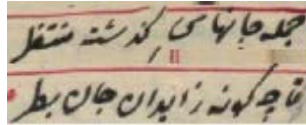 جمله جانهای گذشته منتظر
تا چگونه زاید آن جان بطر